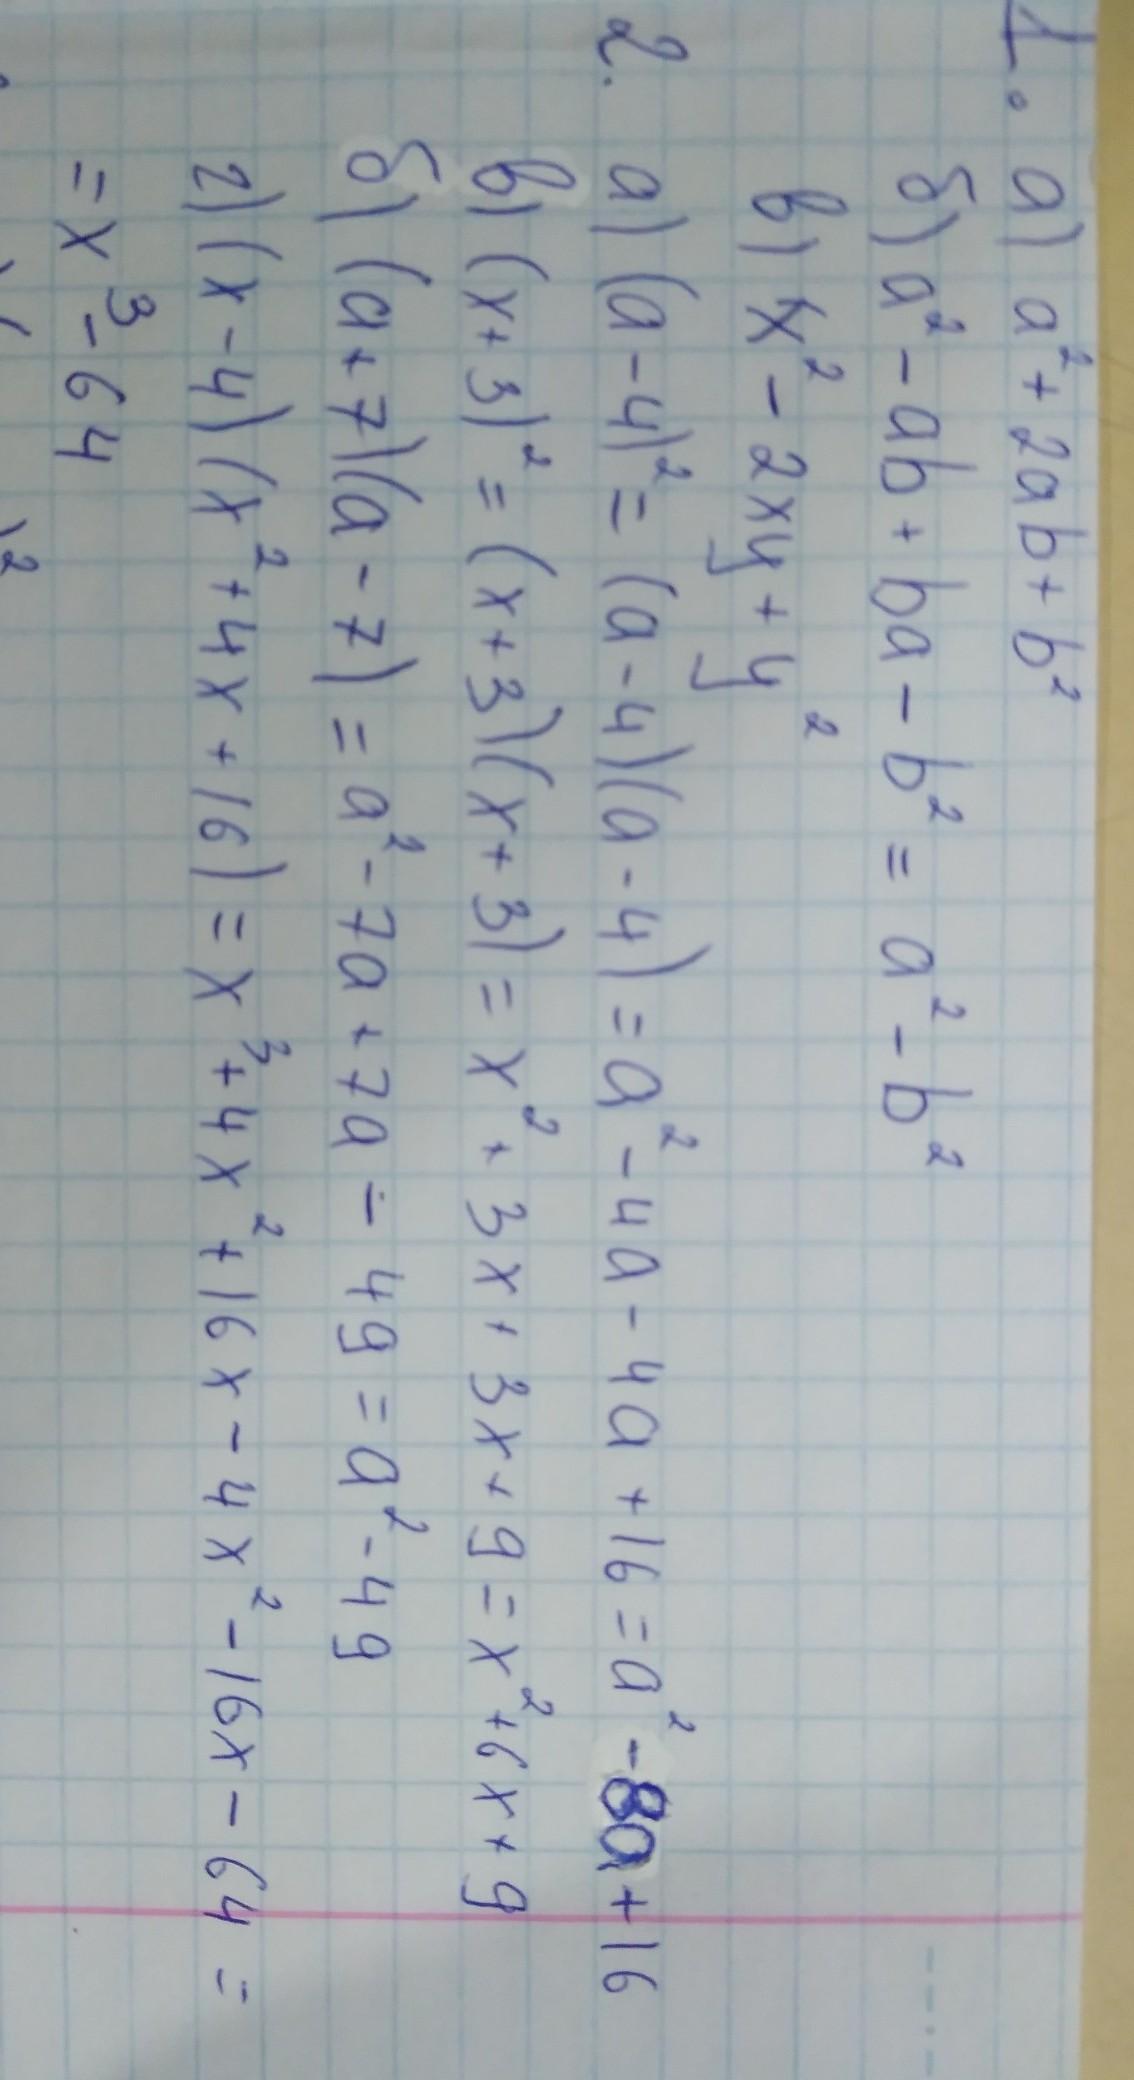 1. а) a² + 2ab + b²
б) a² - ab + ba - b² = a² - b²
в) x² - 2xy + y²
2. а) (a - 4)² = (a - 4)(a - 4) = a² - 4a - 4a + 16 = a² - 8a + 16
в) (x + 3)² = (x + 3)(x + 3) = x² + 3x + 3x + 9 = x² + 6x + 9
б) (a + 7)(a - 7) = a² - 7a + 7a - 49 = a² - 49
г) (x - 4)(x² + 4x + 16) = x³ + 4x² + 16x - 4x² - 16x - 64 =
= x³ - 64